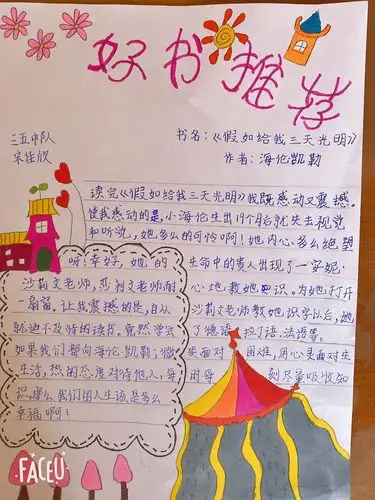 好书推荐
三五中队
宋佳欣
书名:《假如给我三天光明》
作者:海伦凯勒
读完《假如给我三天光明》我既感动又震撼。
使我感动的是,小海伦生出19个月后就失去视觉
和听觉,她多么的可怜啊!她内心多么绝望
呀!幸好,她的生命中的贵人出现了一安妮·
沙莉文老师,莎利文老师耐心地教她知识。为她打开
一扇窗。让我震撼的是,自从沙莉文老师教她识字以后,她
就迫不及待的读书。竟然学会了德语、拉丁语、法语等。
如果我们都向海伦·凯勒,微笑面对困难,用心灵面对生
生活,热的态度对待他人,每时每刻尽量吸收知
识,那么我们的人生该是多么
幸福啊!
FACEU